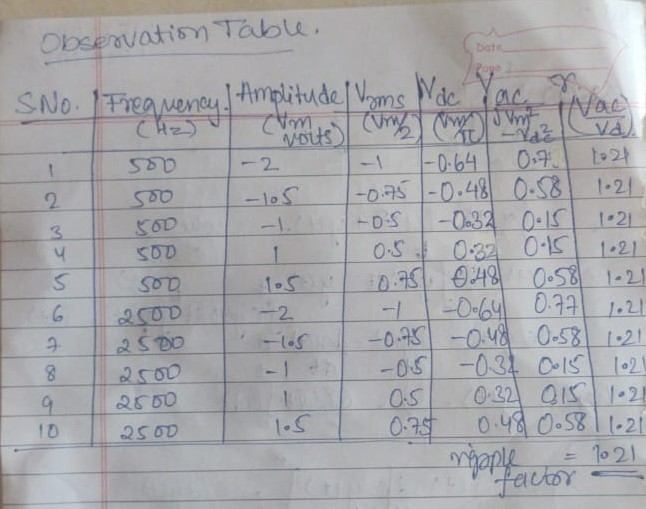 Observation Table.
Date
Page
S No. Frequency (Hz) Amplitude (Vm volts) Vrms (Vm/2) Vdc (Vm/π) Vac √Vm² - Vdc² r (Vac/Vd)
1 500 -2 -1 -0.64 0.7 1.21
2 500 -1.5 -0.75 -0.48 0.58 1.21
3 500 -1 -0.5 -0.32 0.15 1.21
4 500 1 0.5 0.32 0.15 1.21
5 500 1.5 0.75 0.48 0.58 1.21
6 2500 -2 -1 -0.64 0.77 1.21
7 2500 -1.5 -0.75 -0.48 0.58 1.21
8 2500 -1 -0.5 -0.32 0.15 1.21
9 2500 1 0.5 0.32 0.15 1.21
10 2500 1.5 0.75 0.48 0.58 1.21
ripple factor = 1.21